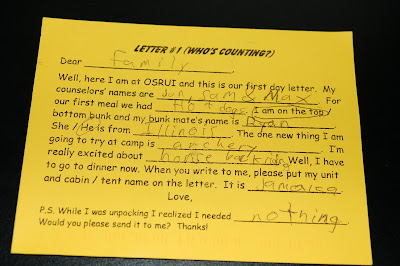 LETTER #1 (WHO'S COUNTING?)
Dear family,
Well, here I am at OSRUI and this is our first day letter. My
counselors' names are Jon, Sam & Max. For
our first meal we had Hot dogs. I am on the top /
bottom bunk and my bunk mate's name is Ryan.
She / He is from Illinois. The one new thing I am
going to try at camp is archery. I'm
really excited about horse back riding. Well, I have
to go to dinner now. When you write to me, please put my unit
and cabin / tent name on the letter. It is
Love,
P.S. While I was unpacking I realized I needed nothing
Would you please send it to me? Thanks!